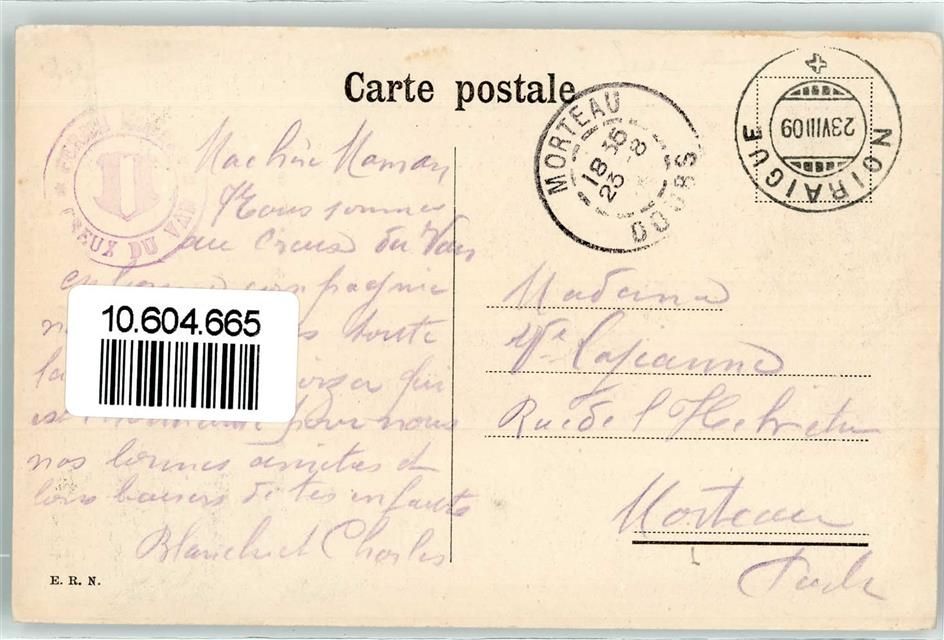 Carte postale
MORTEAU
18 35
23 -8
DOUBS
NOIRAIGUE
23 VIII 09
CREUX DU VAN
Ma chère Maman
Nous sommes
au Creux du Van
en bonne compagnie
toute
la
pour nous
nos bonnes amitiés et
bons baisers de tes enfants
Blanche et Charles
10.604.665
Madame
Vve Cajeanne
Rue de l'Helvétie
Morteau
Doubs
E. R. N.